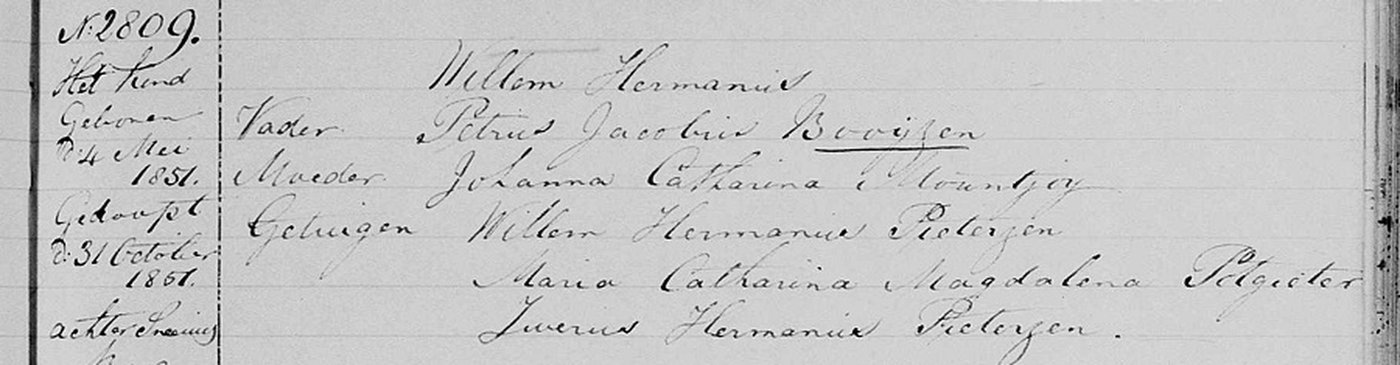 N. 2809.
Het kind Willem Hermanus
Geboren Vader Petrus Jacobus Booijzen
d: 4 Mei
1851. Moeder Johanna Catharina Mountjoy
Gedoopt Getuigen Willem Hermanus Pieterzen
d: 31 October
1851. Maria Catharina Magdalena Potgieter
achter Hermanus Pieterzen.